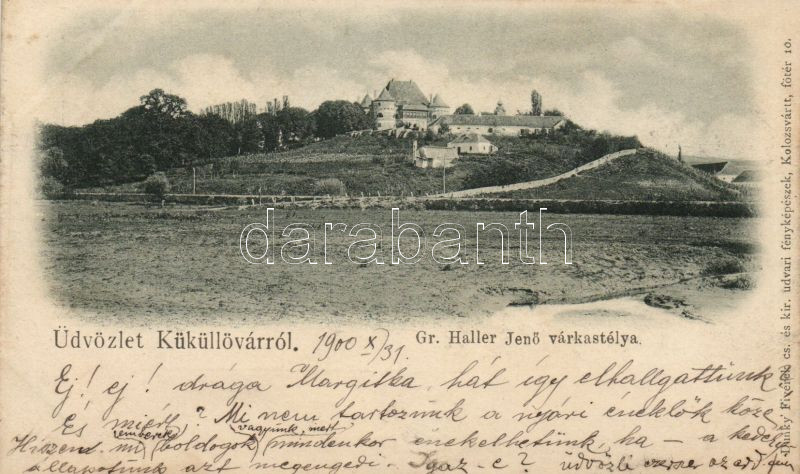 darabanth
Üdvözlet Küküllövárról. 1900 X/31
Gr. Haller Jenő várkastélya.
Dunky Fivérek cs. és kir. udvari fényképészek, Kolozsvártt, főtér 10.
Ej! ej! drága Margitka, hát így elhallgattunk a
És miért? Mi nem tartozunk a nyári éneklők köze
emberek vagyunk, mert
Hiszen mi boldogok mindenkor énekelhetünk, ha – a kedély
állapotunk azt megengedi. Igaz-e? üdvözli ezerszer